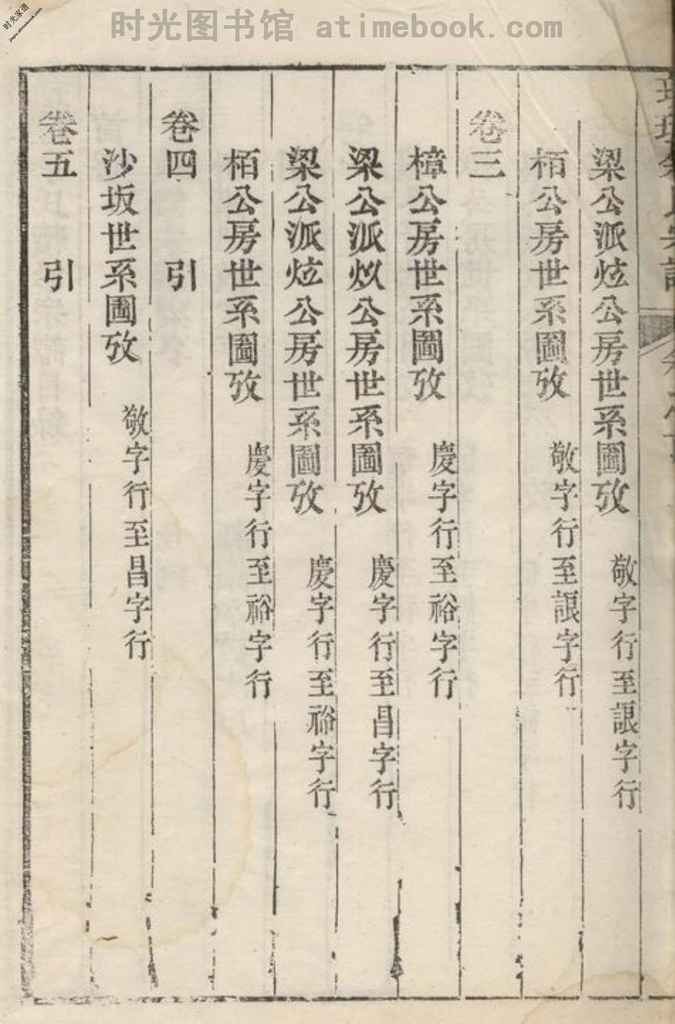 时光图书馆 atimebook.com
时光家谱
梁公派炫公房世系圖攷 敬字行至詪字行
栢公房世系圖攷 敬字行至詪字行
卷三
樟公房世系圖攷 慶字行至裕字行
梁公派炏公房世系圖攷 慶字行至昌字行
梁公派炫公房世系圖攷 慶字行至裕字行
栢公房世系圖攷 慶字行至裕字行
卷四 引
沙坂世系圖攷 敬字行至昌字行
卷五 引